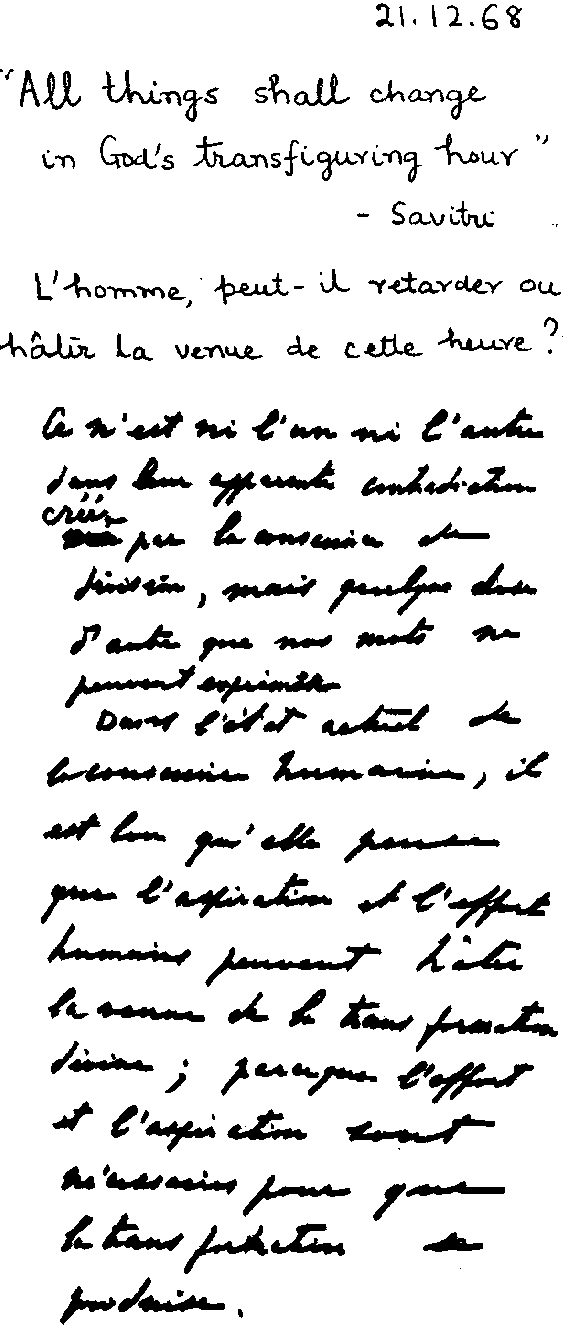 21.12.68
"All things shall change
in God's transfiguring hour"
- Savitri
L'homme, peut-il retarder ou
hâtir la venue de cette heure?
Ce n'est ni l'un ni l'autre
dans leur apparente contradiction
créée
par la conscience de
division, mais quelque chose
d'autre que nos mots ne
peuvent exprimer
Dans l'état actuel de
la conscience humaine, il
est bon qu'elle pense
que l'aspiration et l'effort
humains peuvent hâter
la venue de la transformation
divine; parceque l'effort
et l'aspiration sont
nécessaires pour que
la transformation se
produise.